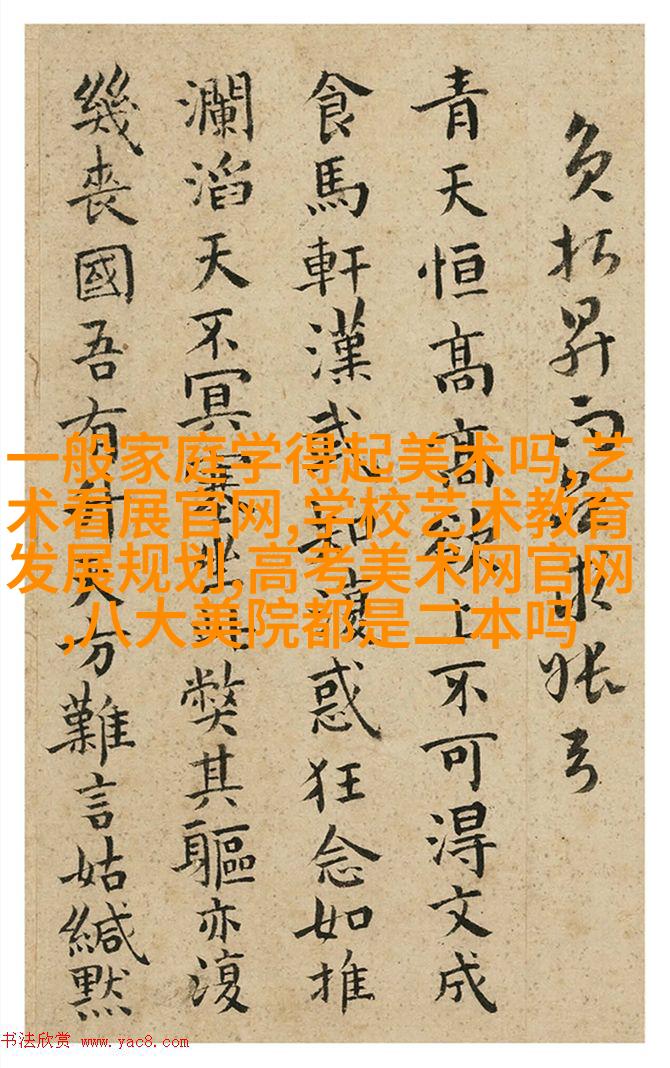 負 昇而 求
青天恒高高欲上不可得文成
食馬軒漢武 復惑狂念如推
瀾滔天不冥 美獘其軀亦復
幾喪國吾有升天方難言姑緘默
一般家庭学得起美术吗,艺
术看展官网,学校艺术教育
发展规划,高考美术网官网
,八大美院都是二本吗
书法欣赏 www.yac8.com